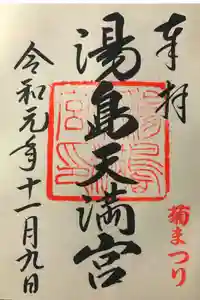 奉拝
湯島天満宮
菊まつり
令和元年十一月九日